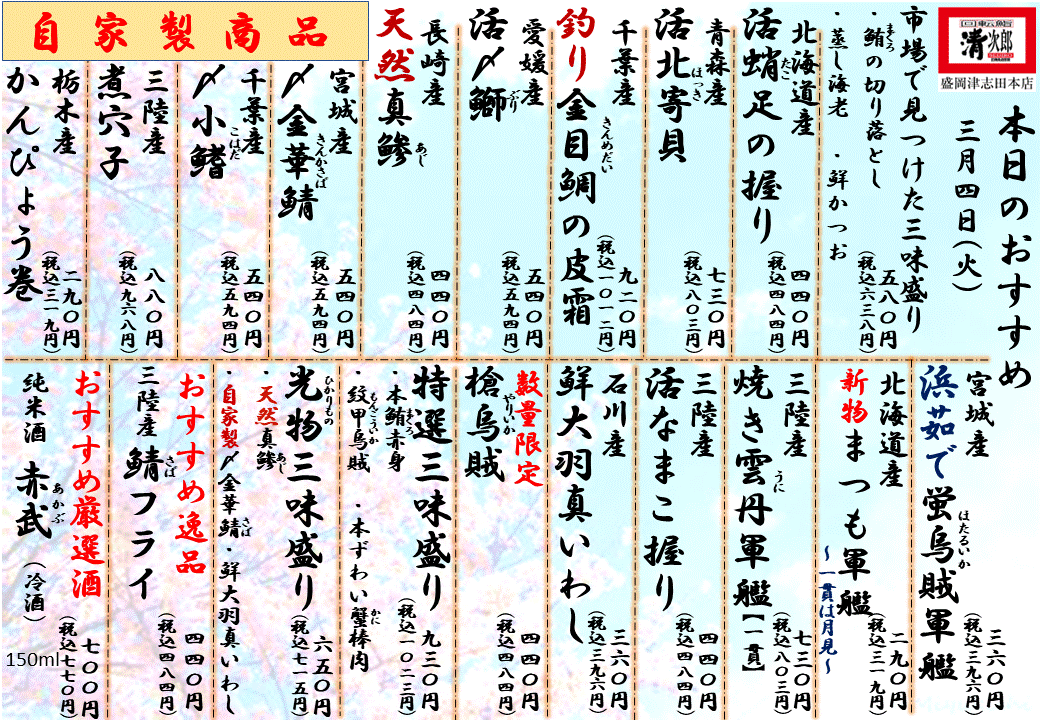 回転鮨
清次郎
盛岡津志田本店
本日のおすすめ
三月四日(火)
市場で見つけた三味盛り
・鮪の切り落とし
まぐろ
・蒸し海老 ・鮮かつお
五八〇円
(税込六三八円)
北海道産
活蛸足の握り
たこ
四四〇円
(税込四八四円)
青森産
活北寄貝
ほっき
七三〇円
(税込八〇三円)
千葉産
釣り金目鯛の皮霜
きんめだい
九二〇円
(税込一〇一二円)
愛媛産
活〆鰤
ぶり
五四〇円
(税込五九四円)
長崎産
天然真鯵
あじ
四四〇円
(税込四八四円)
自家製商品
宮城産
〆金華鯖
きんかさば
五四〇円
(税込五九四円)
千葉産
〆小鰭
こはだ
五四〇円
(税込五九四円)
三陸産
煮穴子
八八〇円
(税込九六八円)
栃木産
かんぴょう巻
二九〇円
(税込三一九円)
宮城産
浜茹で蛍烏賊軍艦
ほたるいか
三六〇円
(税込三九六円)
北海道産
新物まつも軍艦
～一貫は月見～
二九〇円
(税込三一九円)
三陸産
焼き雲丹軍艦【一貫】
うに
七三〇円
(税込八〇三円)
三陸産
活なまこ握り
四四〇円
(税込四八四円)
石川産
鮮大羽真いわし
三六〇円
(税込三九六円)
数量限定
槍烏賊
やりいか
四四〇円
(税込四八四円)
特選三味盛り
・本鮪赤身
まぐろ
・紋甲烏賊 ・本ずわい蟹棒肉
もんこういか
かに
九三〇円
(税込一〇二三円)
光物三味盛り
ひかりもの
・天然真鯵
あじ
・自家製〆金華鯖・鮮大羽真いわし
さば
六五〇円
(税込七一五円)
おすすめ逸品
三陸産 鯖フライ
さば
四四〇円
(税込四八四円)
おすすめ厳選酒
純米酒 赤武 (冷酒)
あかぶ
150ml
七〇〇円
(税込七七〇円)